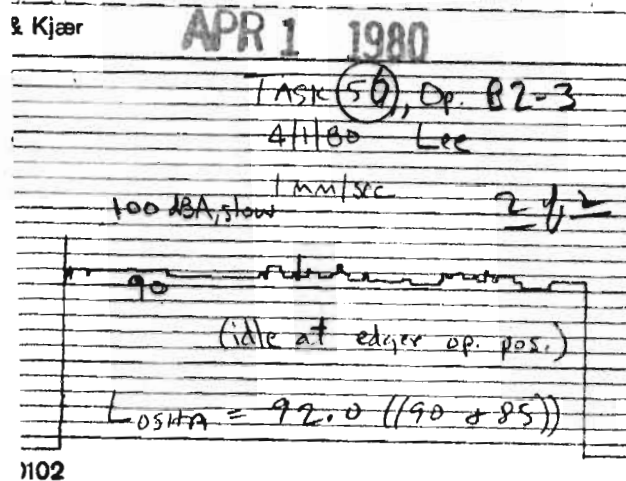 & Kjær
APR 1 1980
TASK 50, Op. B2-3
4/1/80 Lee
1 mm/sec
100 dBA, slow
2 of 2
90
(idle at edger op. pos.)
LOSHA = 92.0 ((90 & 85))
0102